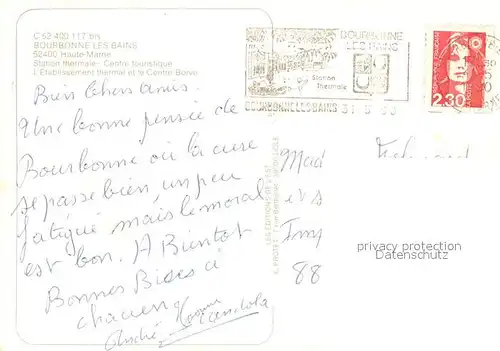 C 52 400 117 bis
BOURBONNE LES BAINS
52400 Haute-Marne
Station thermale - Centre touristique
L'Etablissement thermal et le Centre Borvo
BOURBONNE
LES BAINS
Station
Thermale
BOURBONNE LES BAINS
31-5
2,30
LA POSTE
Bien chers amis.
Une bonne pensée de
Bourbonne où la cure
se passe bien, un peu
fatigué mais le moral
est bon. A Bientôt
Bonnes Bises à
chacun
André
Mad
88
LES EDITIONS DE L'EST
privacy protection
Datenschutz